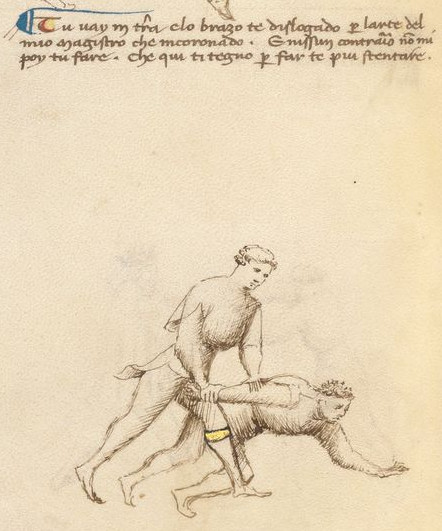 Tu vay in tr̃a e lo brazo te dislogado ꝑ larte del
mio magistro che incoronado. E nissun contrario nō mi
poy tu fare. Che qui ti tegno ꝑ far te piu stentare.